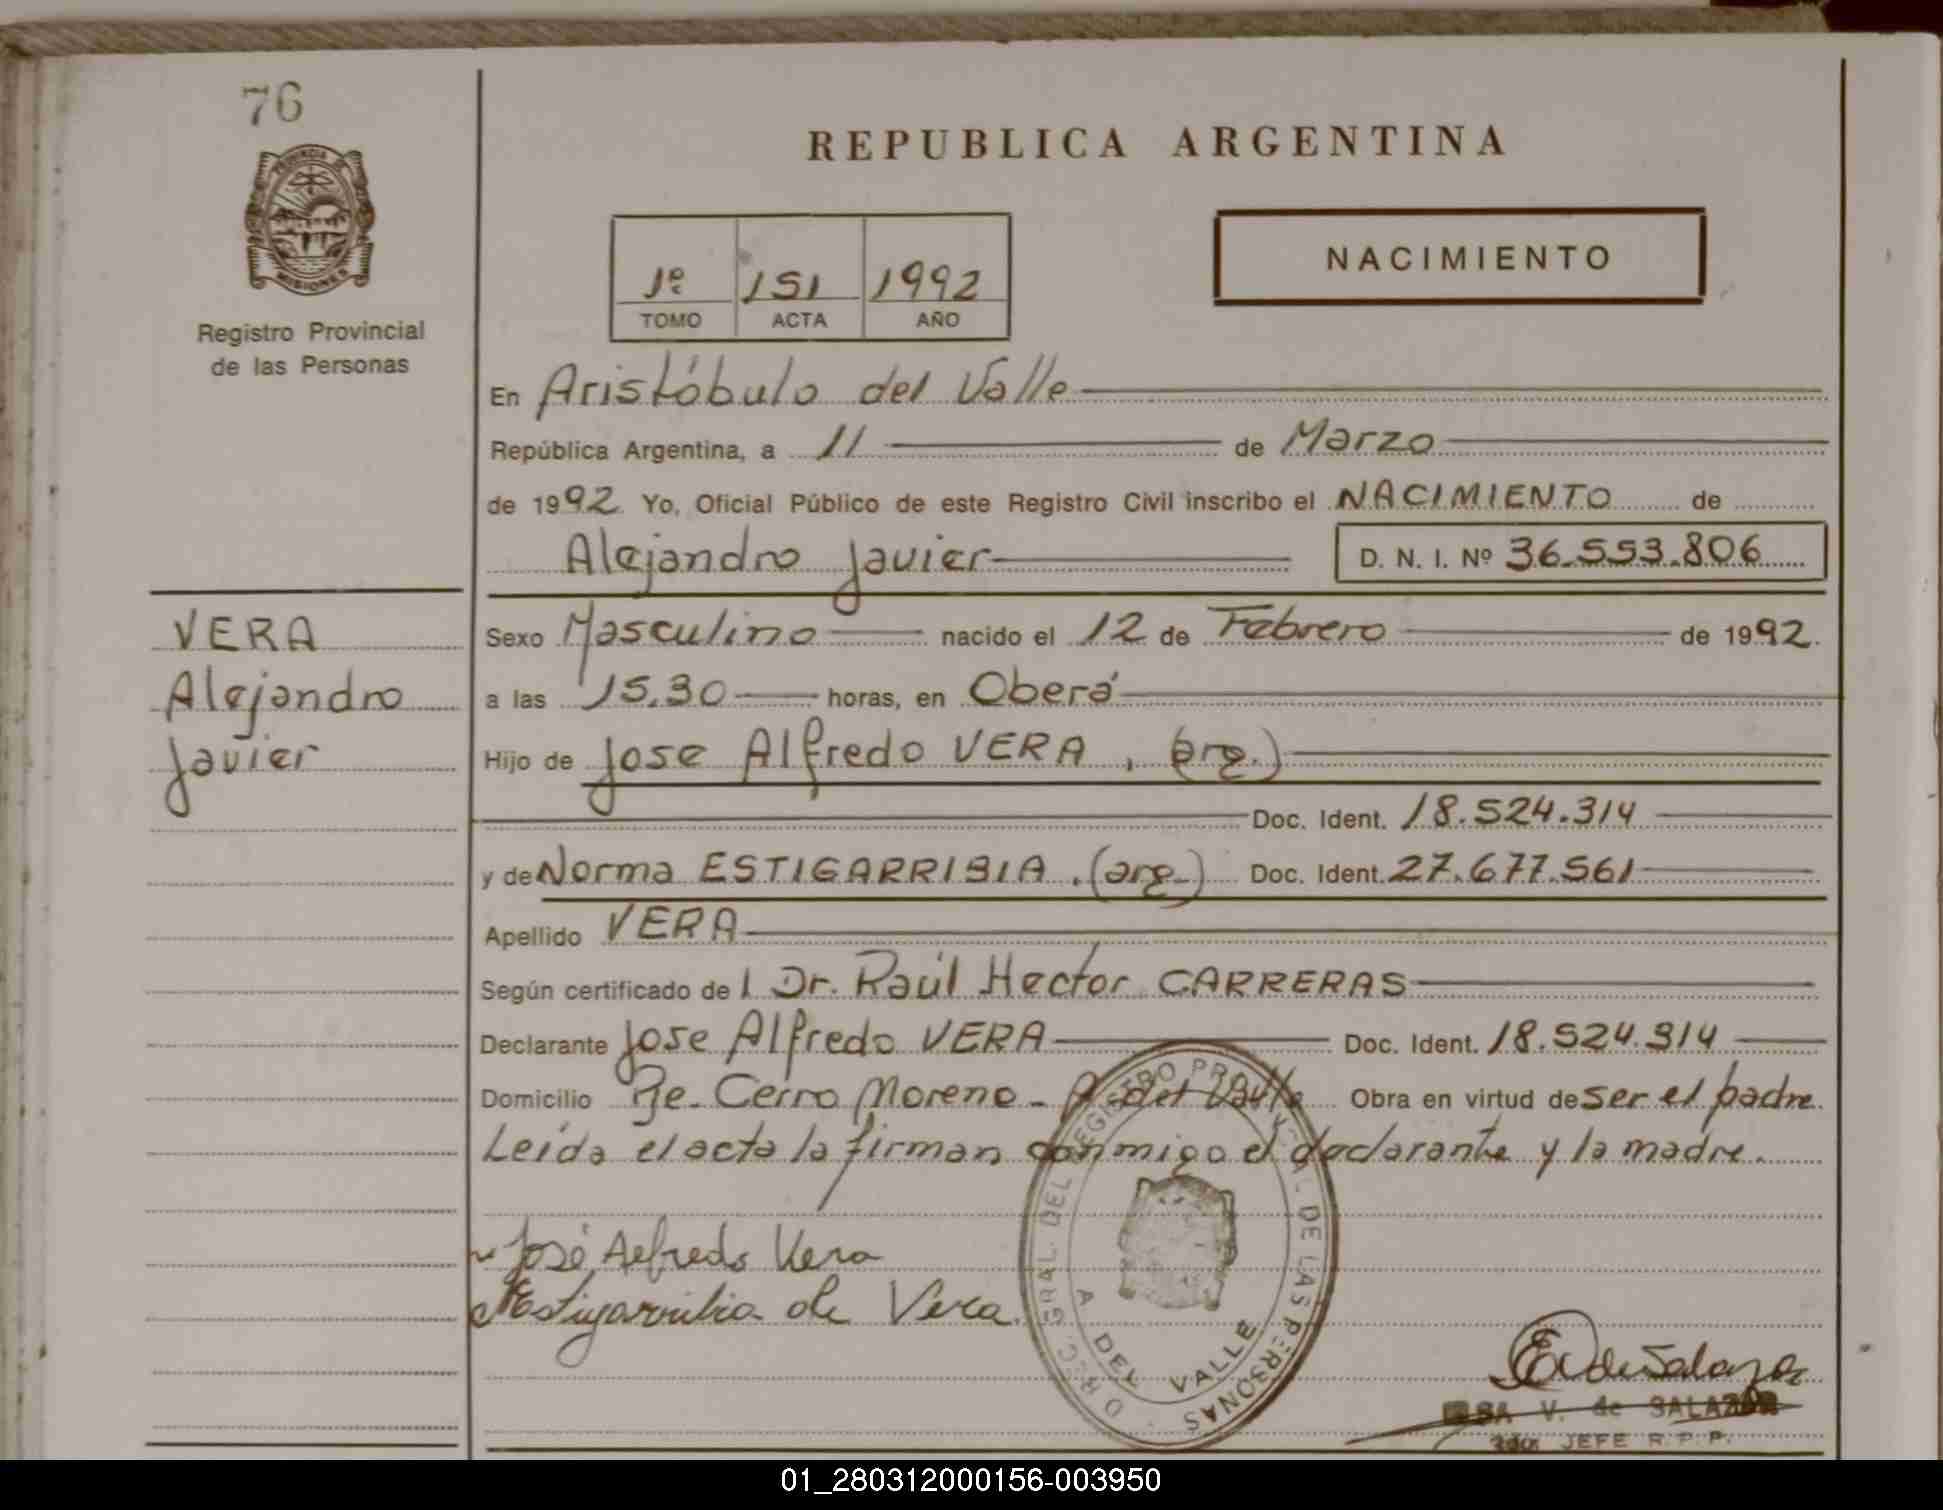 76
PROVINCIA DE
MISIONES
Registro Provincial
de las Personas
REPUBLICA ARGENTINA
1º 151 1992
TOMO ACTA AÑO
NACIMIENTO
En Aristóbulo del Valle
República Argentina, a 11 de Marzo
de 1992 Yo, Oficial Público de este Registro Civil inscribo el NACIMIENTO de
Alejandro Javier D. N. I. Nº 36.553.806
VERA
Alejandro
Javier
Sexo Masculino nacido el 12 de Febrero de 1992.
a las 15,30 horas, en Oberá
Hijo de Jose Alfredo VERA, (arg.)
Doc. Ident. 18.524.314
y de Norma ESTIGARRIBIA, (arg.) Doc. Ident. 27.677.561
Apellido VERA
Según certificado del Dr. Raúl Hector CARRERAS
Declarante Jose Alfredo VERA Doc. Ident. 18.524.314
Domicilio Pje. Cerro Moreno - A. del Valle Obra en virtud de ser el padre.
Leída el acta la firman conmigo el declarante y la madre.
José Alfredo Vera
NEstigarribia de Vera.
DIREC. GRAL. DEL REGISTRO PROVINCIAL DE LAS PERSONAS
A DEL VALLE
EVdeSalazar
V. de SALAZAR
JEFE R.P.P.
01_280312000156-003950